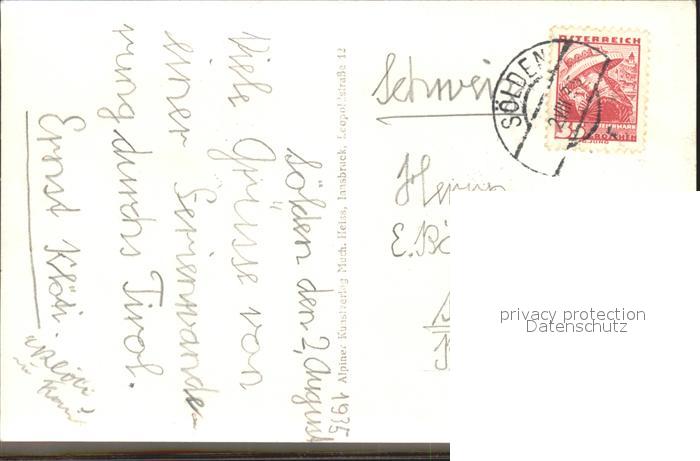 Sölden den 2, August
1935
Viele Grüsse von
einer Ferienwande
rung durchs Tirol.
Ernst
Alpiner Kunstverlag Much. Heiss, Innsbruck, Leopoldstraße 12
Schwei
Herrn
E. Bö
ÖSTERREICH
SÖLDEN
privacy protection
Datenschutz